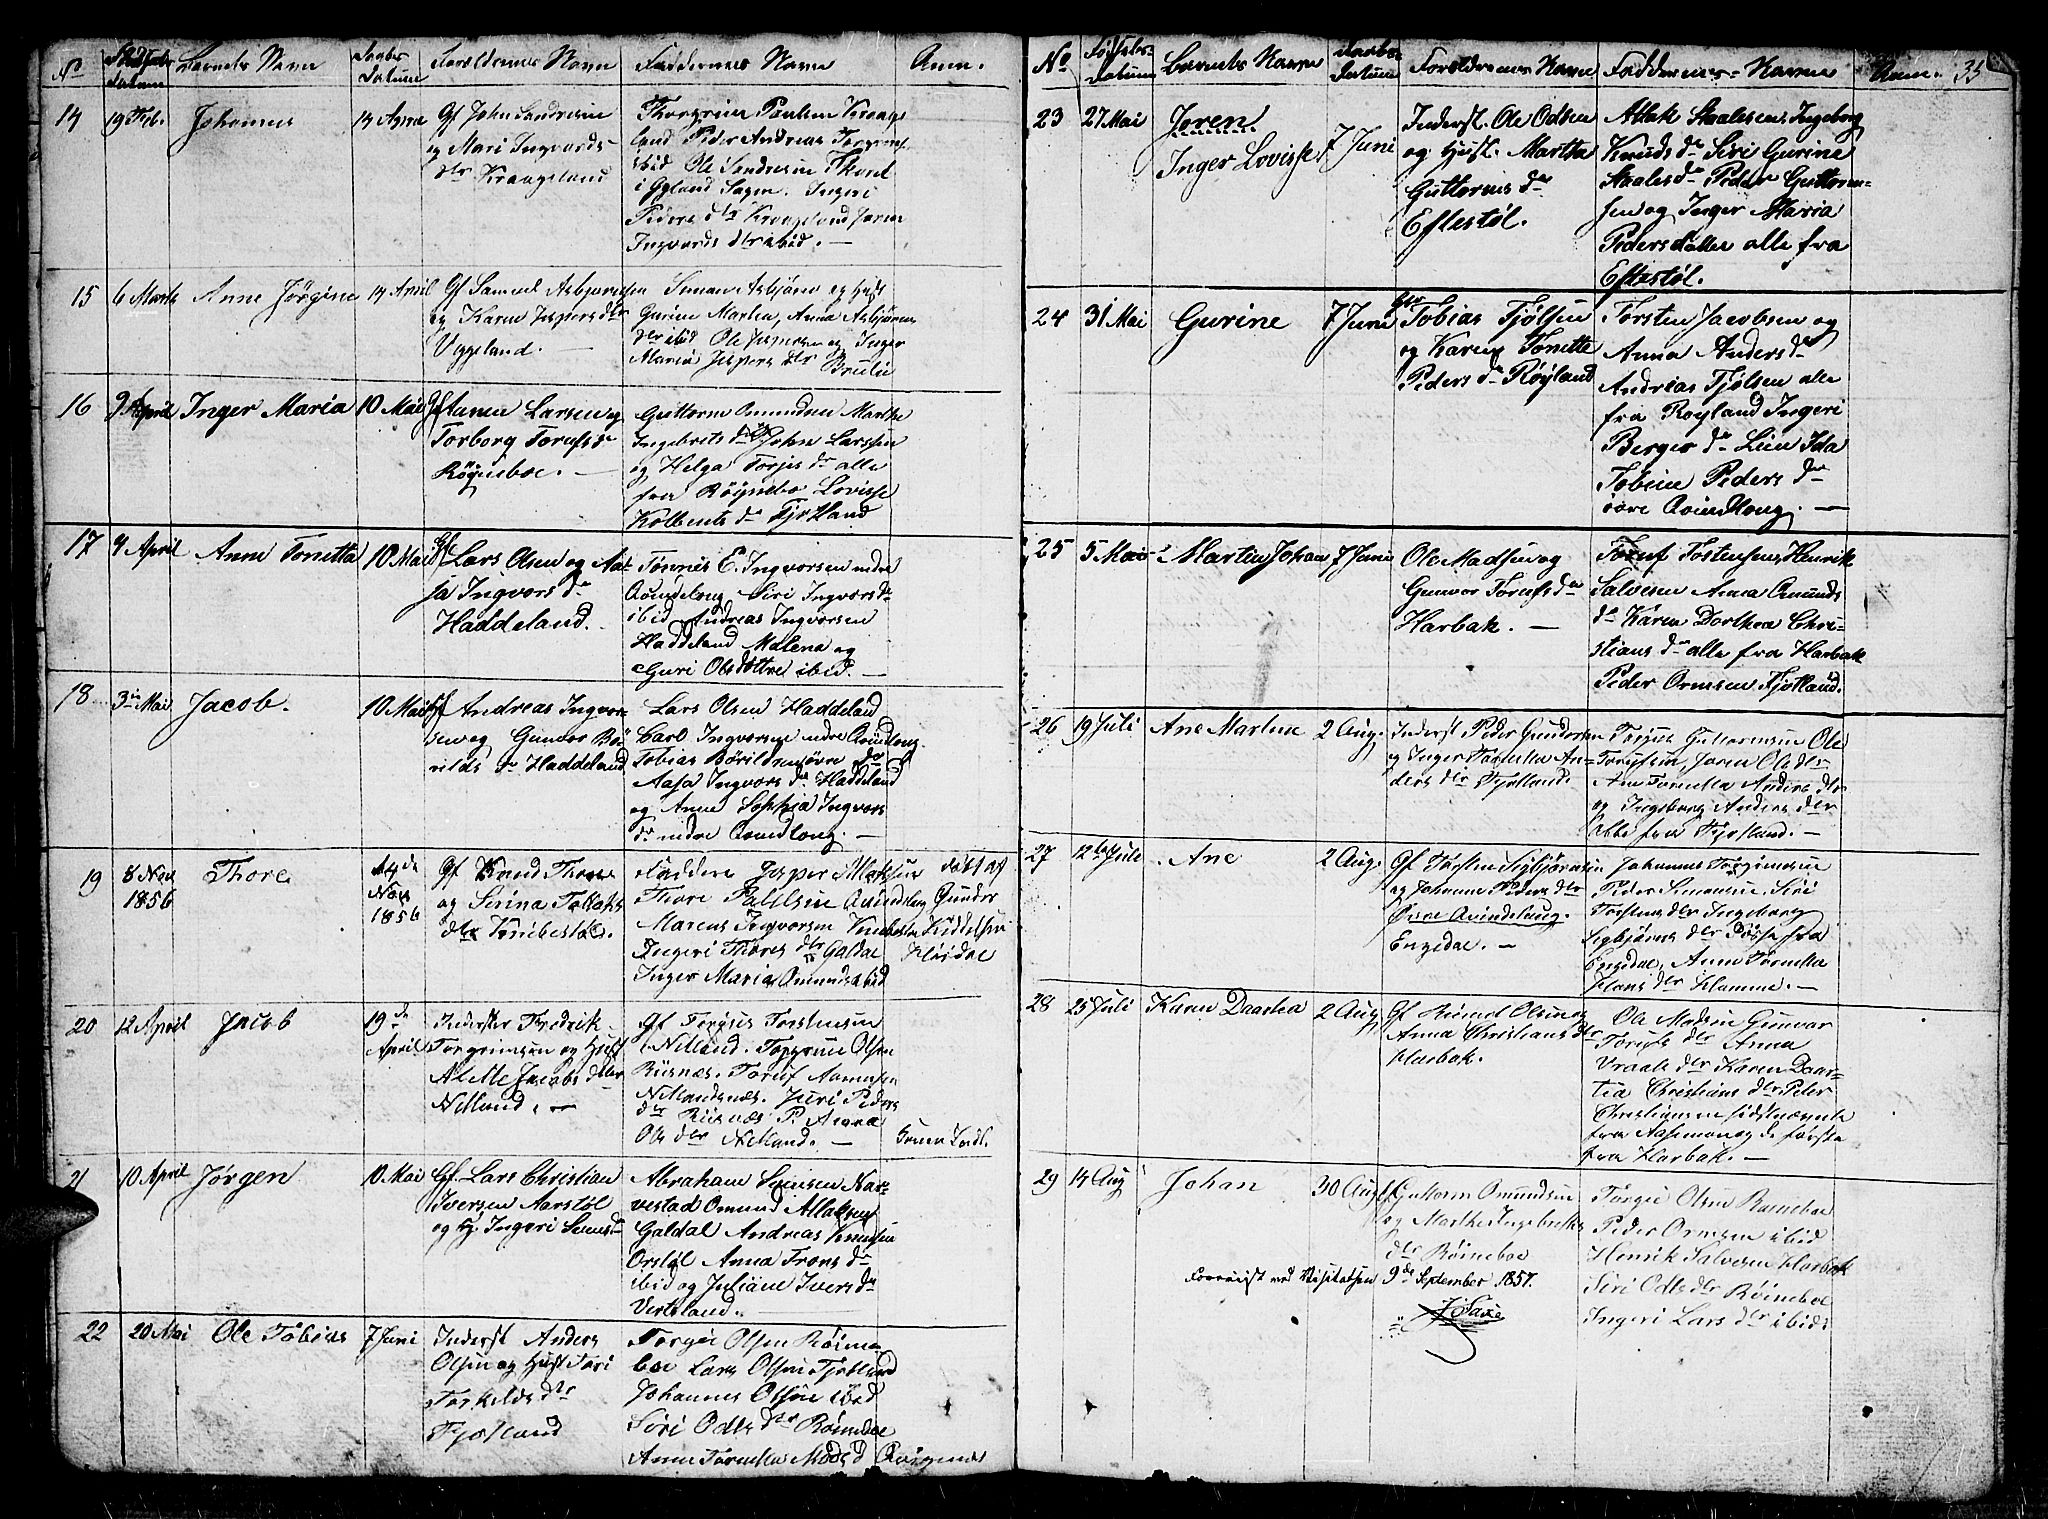 No
Fødsels Datum
Barnets Navn
Daabs Datum
Forældrenes Navn
Faddernes Navn
Anm.
14
19 Feb.
Johannes
14 April
Gf John Sandresen
og Mari Ingvards
dtr Kraageland
Thorgrim Paulsen Kraage
land Peder Andreas Torgrims
ibid Ole Sandresen
i Gyland Sogn. Ingeri
Peders dtr Kraageland Joren
Ingvards dtr ibid. —
15
6 Marts
Anne Jørgine
14 April
Gf Samuel Asbjørnsen
og Karen Jespersdtr
Viggeland. —
Simon Asbjørns og Hust
Gurine Martea, Anna Asbjørns
dtr ibid Ole Jespersen og Inger
Maria Jespers dtr Bruli
16
9 April
Inger Maria
10 Mai
Gf Aanen Larsen og
Torborg Torufs dr
Røgneboe. —
Guttorm Omundsen Marthe
Ingebrets dr John Larssen
og Helga Torjes dr alle
fra Røgnebo Lovisse
Kolbents dr Fjotland
17
4 April
Anne Tonetta
10 Mai
Gf Lars Olsen og Aa
sa Ingvors dr
Haddeland.
Tønnes E. Ingvorsen nedre
Qvindelong Siri Ingvors dr
ibid Andreas Ingvorsen
Haddeland Malena og
Guri Olsdøttre ibid. —
18
3 Mai
Jacob.
10 Mai
Gf Andreas Ingvor-
sen og Gunvor Bø-
rilds dr Haddeland
Lars Olsen Haddeland
Carl Ingvorsen nedre Qvindlong.
Tobias Børildsen øvre do
Aasa Ingvors dr Haddeland
og Anne Sophia Ingvors
dr nedre Qvindlong. —
19
8 Nov
1856
Thore
Nov
1856
Gf Knud Thores
og Serina Tollaks
dtr Knibestøl.
Faddere Jesper Marksen
Thore Pallesen Qvindelog
Marcus Ingvorsen Knibestøl
Ingeri Thores dtr Galdal
Inger Maria Omunds ibid
døbt af
Gunder
20
12 April
Jacob
19 de
April
Inderster Fredrik
Torgrimsen og Hust
Alette Jacobs dtr
Netland. —
Gf Terjus Torstensen
Netland. Torgrim Olsen
Risnæs. Toruf Aanensen
Netlandsnæs. Juri Peders
dtr Risnæs P. Anna
Ols dtr Netland. —
21
10 April
Jørgen
10 Mai
Gf. Lars Christian
Iversen Aarstøl
og Hj. Ingeri Svens dr
Abraham Svensen Nar-
vestad Omund Atlaksen
Galdal Andreas Knudsen
Orstøl Anna Frans dr
ibid og Juliane Ivers dr
Virteland.
22
20 Mai
Ole Tobias
7 Juni
Inderst Anders
Olsen og Hust Tori
Torkelds dtr
Fjotland
Torger Olsen Røine
boe Lars Olsen Fjotland
Johannes Olsen ibid
Siri Odls dtr Røineboe
Anne Tornette Mads d Risnes
No
Fødsels-
Datum
Barnets Navn
Daabs-
Datum
Forældrenes Navn
Faddernes Navn
Anm.
35
23
27 Mai
Joren
Inger Lovisse
7 Juni
Inderst. Ole Odlsen
og Hust. Martha
Guttorms dr
Eftestøl.
Atlak Staalesen, Ingeborg
Knuds dr Siri Gurine
Staales dr Peder Guttorm-
sen og Inger Maria
Pedersdatter alle fra
Eftestøl.
24
31 Mai
Gurine
7 Juni
Gbr
Tobias Fjølsen
og Karen Tonette
Peders dr Røyland
Torsten Jacobsen og
Anna Anders dr
Andreas Fjølsen alle
fra Royland Ingeri
Berger dr Lien Ida
Tobine Peders dr
øvre Qvindlong. —
25
5 Mai
Martin Johan
7 Juni
Ole Madsen og
Gunvor Torufs dr
Harbak. —
Toruf Tostensen, Henrik
Salvesen Anna Omunds
dr Karen Dorthea Chri-
stians dr alle fra Harbak
Peder Ormsen Fjotland.
26
19 Juli
Ane Marlene
2 Aug.
Inderst Peder Gundersen
og Inger Tornetta An-
ders dtr Fjotland.
Torjus Guttormsen Ole
Torufsen, Joren Ols dtr
Ane Tornetta Anders dtr
og Ingeborg Anders dtr
alle fra Fjotland. —
27
12 Juli
Ane
2 Aug.
Gf Torsten Sigbjørnsen
og Johanne Peders dtr
Øvre Qvindelaug.
Engedal. —
Johannes Torgrimsen
Peder Simonsen Siri
Torstens dtr Ingeborg
Sigbjørns dtr Røssa fra
Engedal, Anne Tornetta
Hans dtr Hamme. —
28
25 Juli
Karen Daartea
2 Aug
Gf Omund Olsen og
Anna Christians dtr
Harbak.
Ole Madsen Gunvor
Torufs dtr Anna
Vraals dtr Karen Daar-
tea Christians dtr Peter
Christiansen sidstnævnte
fra Aasemon og de første
fra Harbak. —
29
14 Aug
Johan
30 Aug
Gf Guttorm Omundsen
og Marthe Ingebrets
dtr Røineboe
Torger Olsen Røineboe
Peder Ormsen ibid
Henrik Salvesen Harbak
Siri Odls dtr Røineboe
Ingeri Lars dtr ibid
Foreviist ved Visitatsen 9de September 1857.